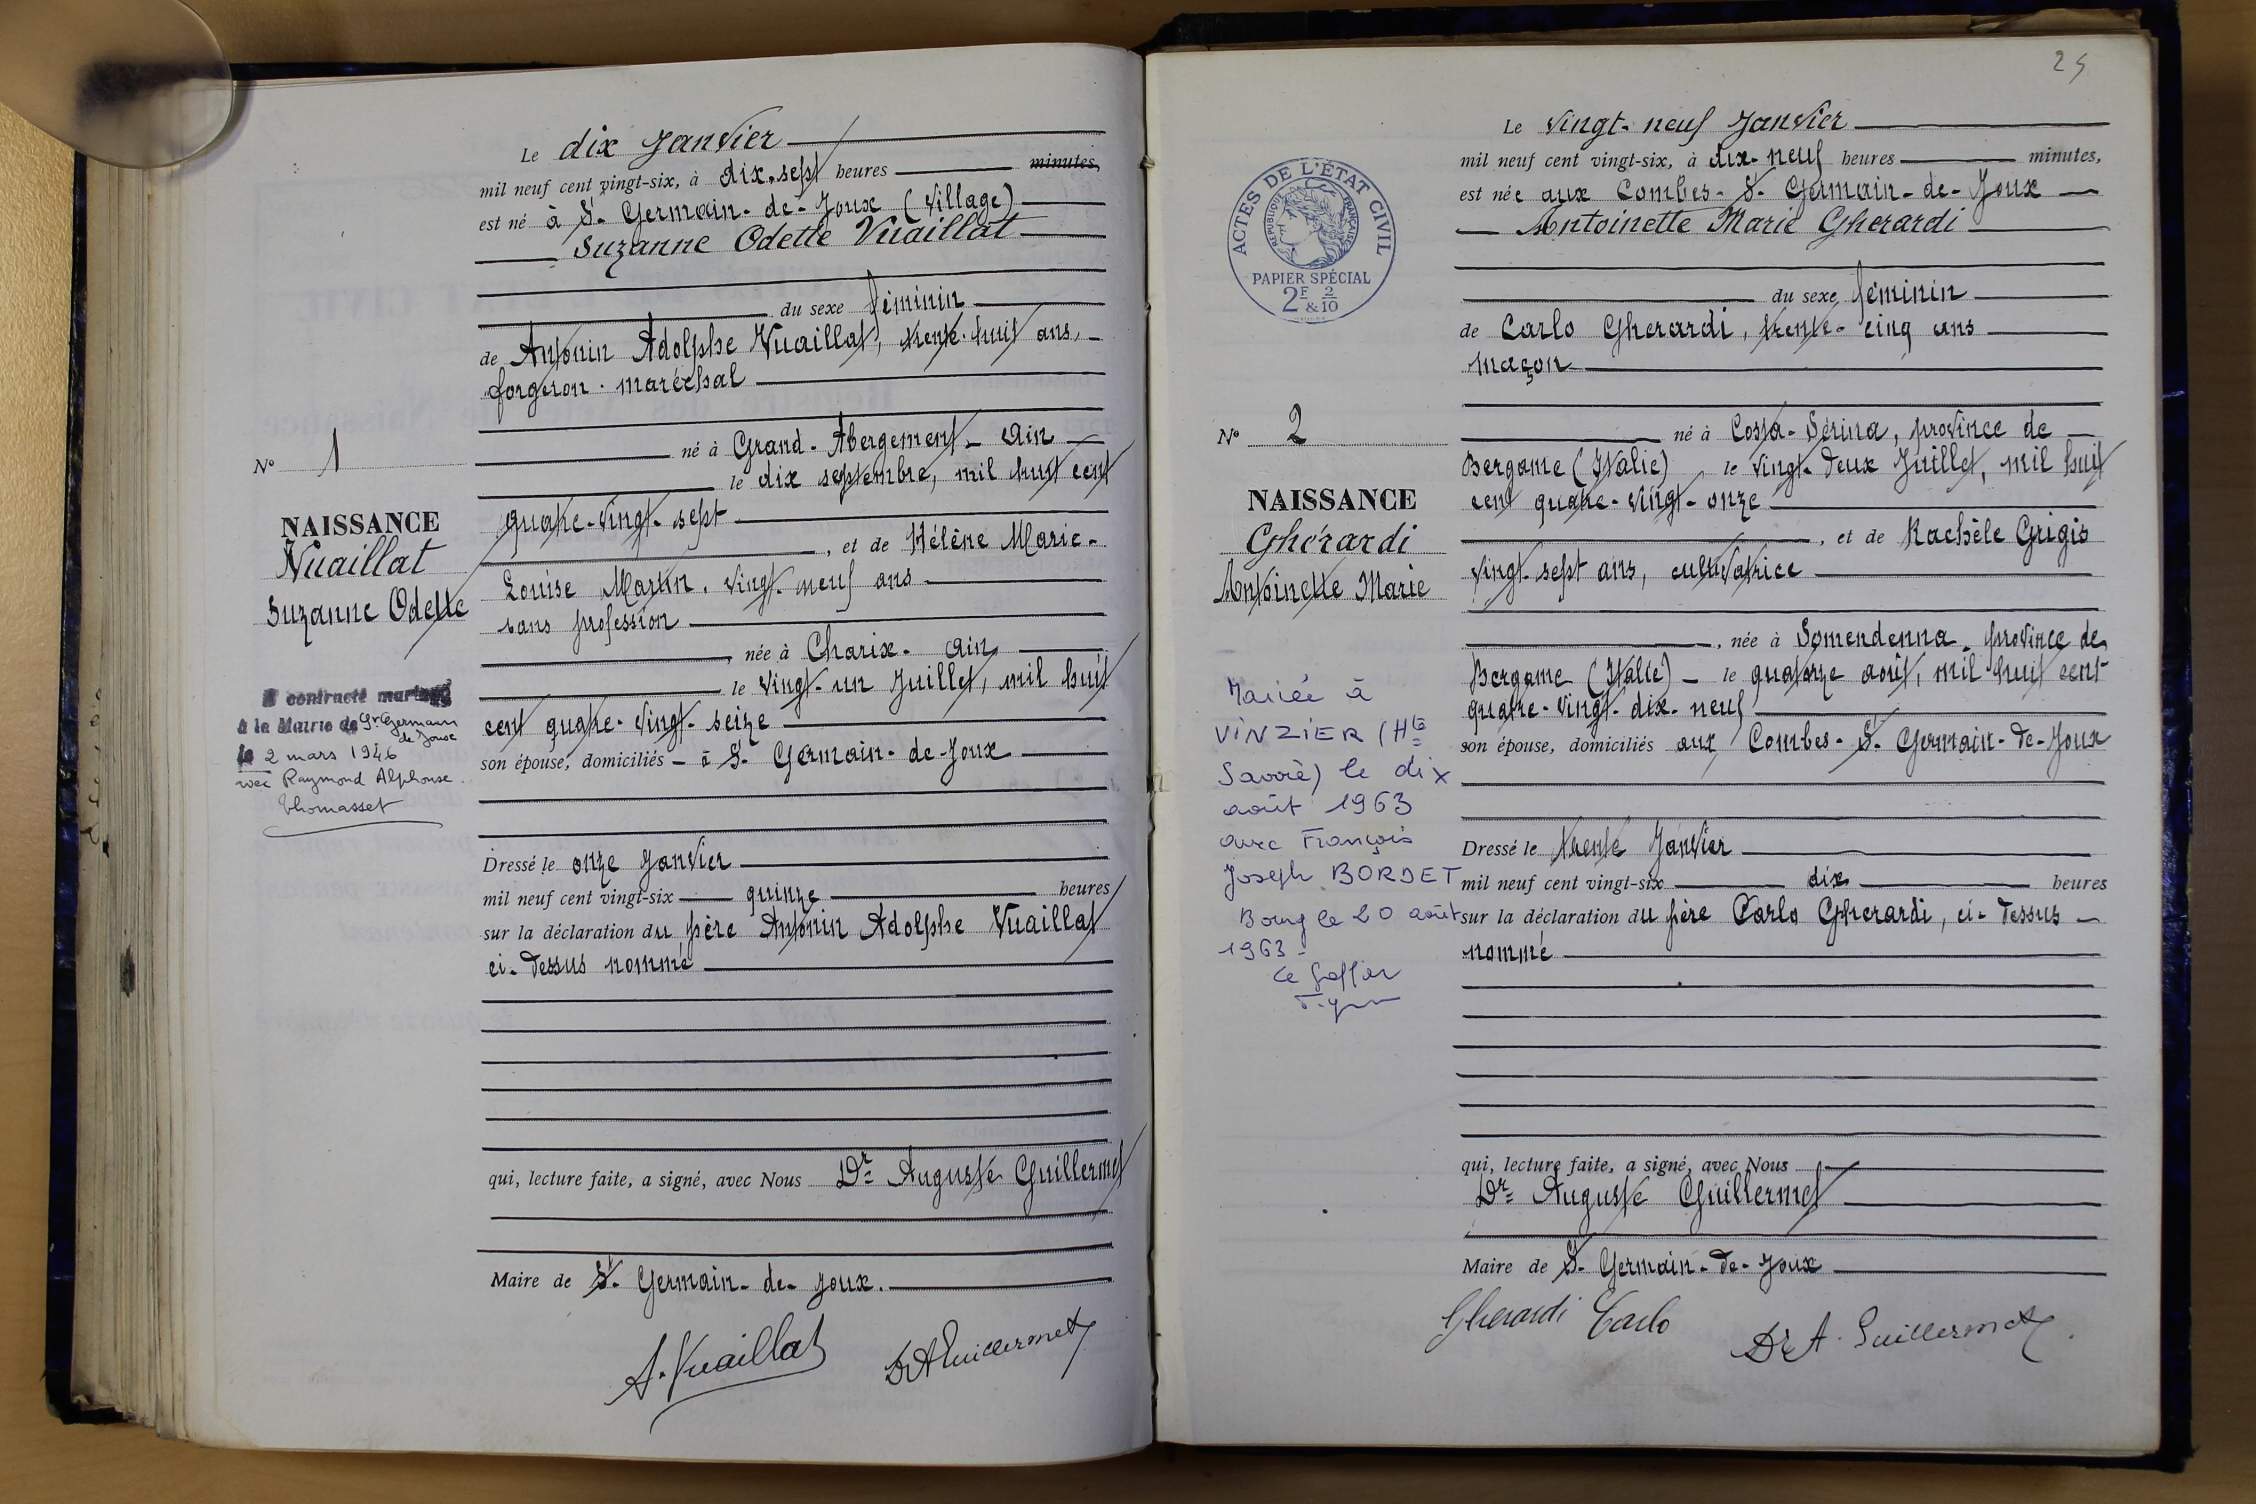 Le dix Janvier
mil neuf cent vingt-six, à dix-sept heures minutes,
est né à St- Germain-de-Joux (Village)
Suzanne Odette Vuaillat
du sexe féminin
de Antonin Adolphe Vuaillat, trente-huit ans,
forgeron-maréchal
né à Grand-Abergement- Ain
le dix septembre, mil huit cent
quatre-vingt-sept
, et de Hélène Marie-
Louise Martin, vingt-neuf ans
sans profession
, née à Charix- Ain
le vingt-un Juillet, mil huit
cent quatre-vingt-seize
son épouse, domiciliés à St- Germain-de-Joux
Dressé le onze Janvier
mil neuf cent vingt-six quinze heures
sur la déclaration du père Antonin Adolphe Vuaillat
ci-dessus nommé
qui, lecture faite, a signé, avec Nous Dr Auguste Guillermet
Maire de St- Germain-de-Joux.
A. Vuaillat
Dr A Guillermet
No 1
NAISSANCE
Vuaillat
Suzanne Odette
A contracté mariage
à la Mairie de St Germain
de Joux
le 2 mars 1946
avec Raymond Alphonse
Thomasset
25
Le vingt-neuf Janvier
mil neuf cent vingt-six, à dix-neuf heures minutes,
est née aux Combes- St- Germain-de-Joux
Antoinette Marie Gherardi
du sexe féminin
de Carlo Gherardi, trente-cinq ans
maçon
né à Costa-Sérina, province de
Bergame (Italie) le vingt-deux Juillet, mil huit
cent quatre-vingt-onze
, et de Rachèle Grigis
vingt-sept ans, cultivatrice
, née à Somendenna, province de
Bergame (Italie) le quatorze août, mil huit cent
quatre-vingt-dix-neuf
son épouse, domiciliés aux Combes- St- Germain-de-Joux
Dressé le trente Janvier
mil neuf cent vingt-six dix heures
sur la déclaration du père Carlo Gherardi, ci-dessus
nommé
qui, lecture faite, a signé, avec Nous
Dr Auguste Guillermet
Maire de St- Germain-de-Joux
Gherardi Carlo
Dr A. Guillermet
ACTES DE L'ÉTAT CIVIL
RÉPUBLIQUE FRANÇAISE
PAPIER SPÉCIAL
2F & 2/10
No 2
NAISSANCE
Ghérardi
Antoinette Marie
Mariée à
VINZIER (Hte
Savoie) le dix
août 1963
avec François
Joseph BORDET
Bourg le 20 août
1963-
Le Greffier